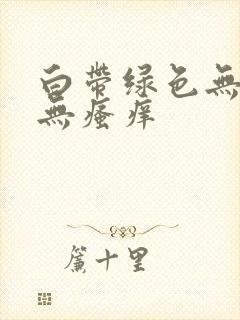 白带绿色無
無瘙痒
簾十里